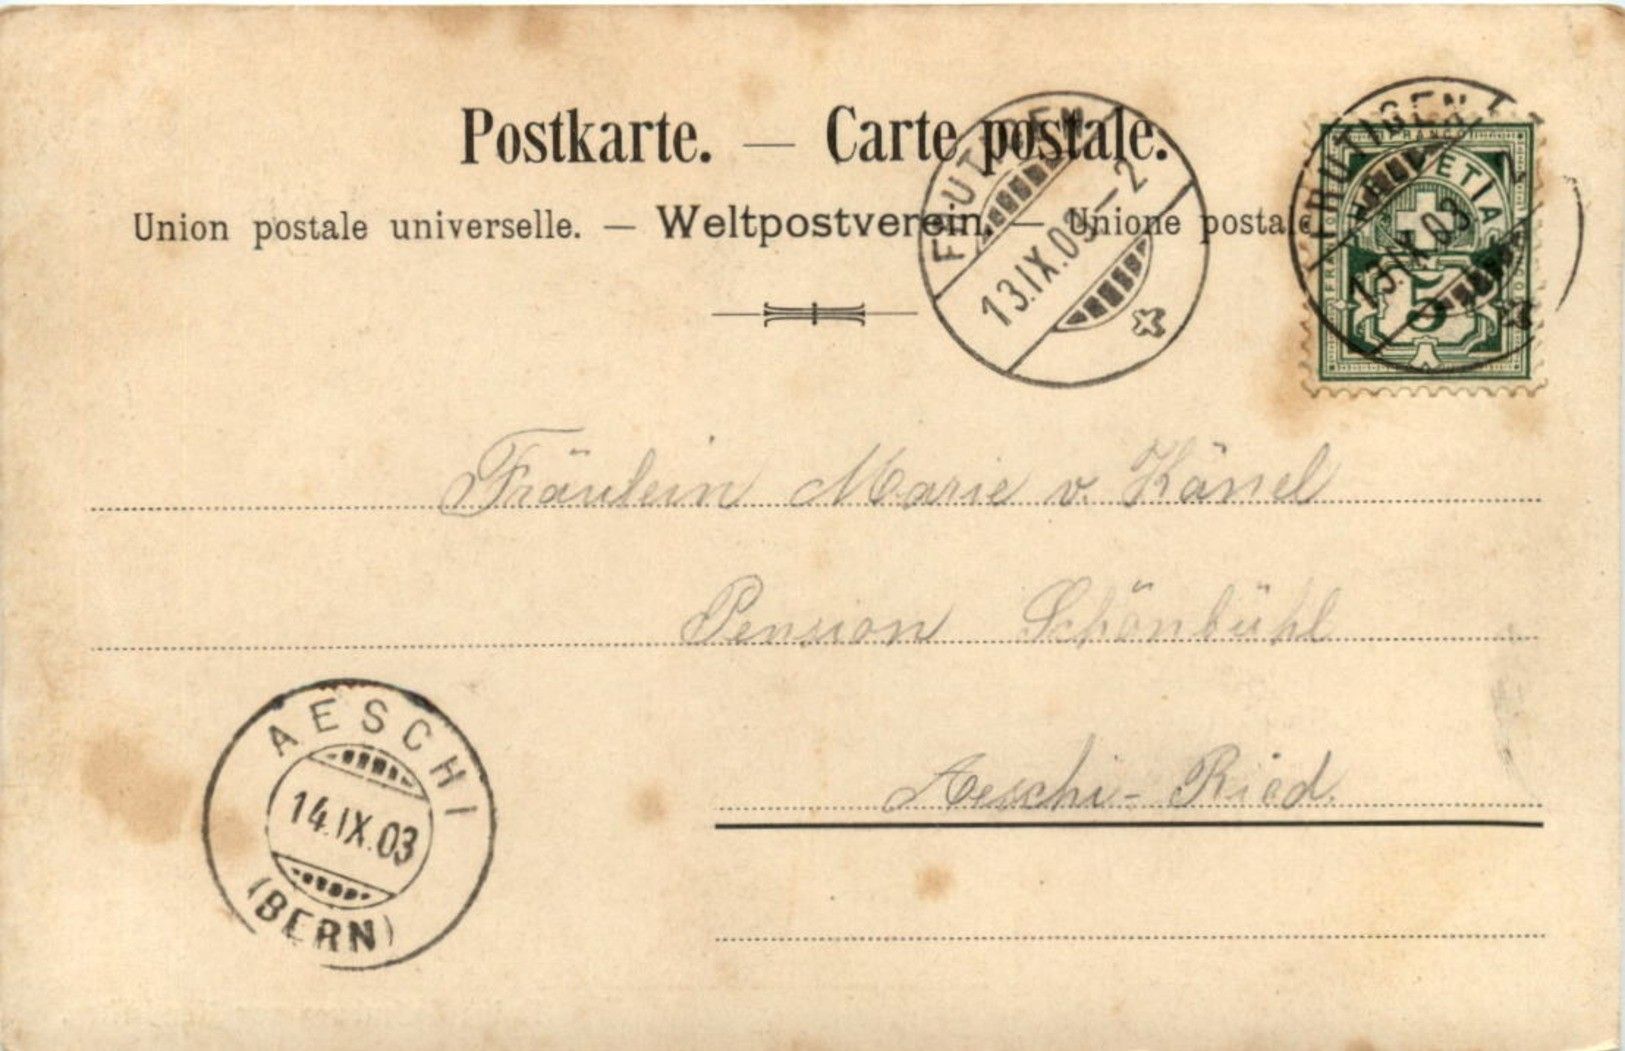 Postkarte. — Carte postale.
Union postale universelle. — Weltpostverein. — Unione postale
FRUTIGEN
13.IX.03–2
FRUTIGEN
13.IX.03
2
FRANCO
HELVETIA
5
Fräulein Marie v. Känel
Pension Schönbühl
Aeschi-Ried.
AESCHI
14.IX.03
(BERN)